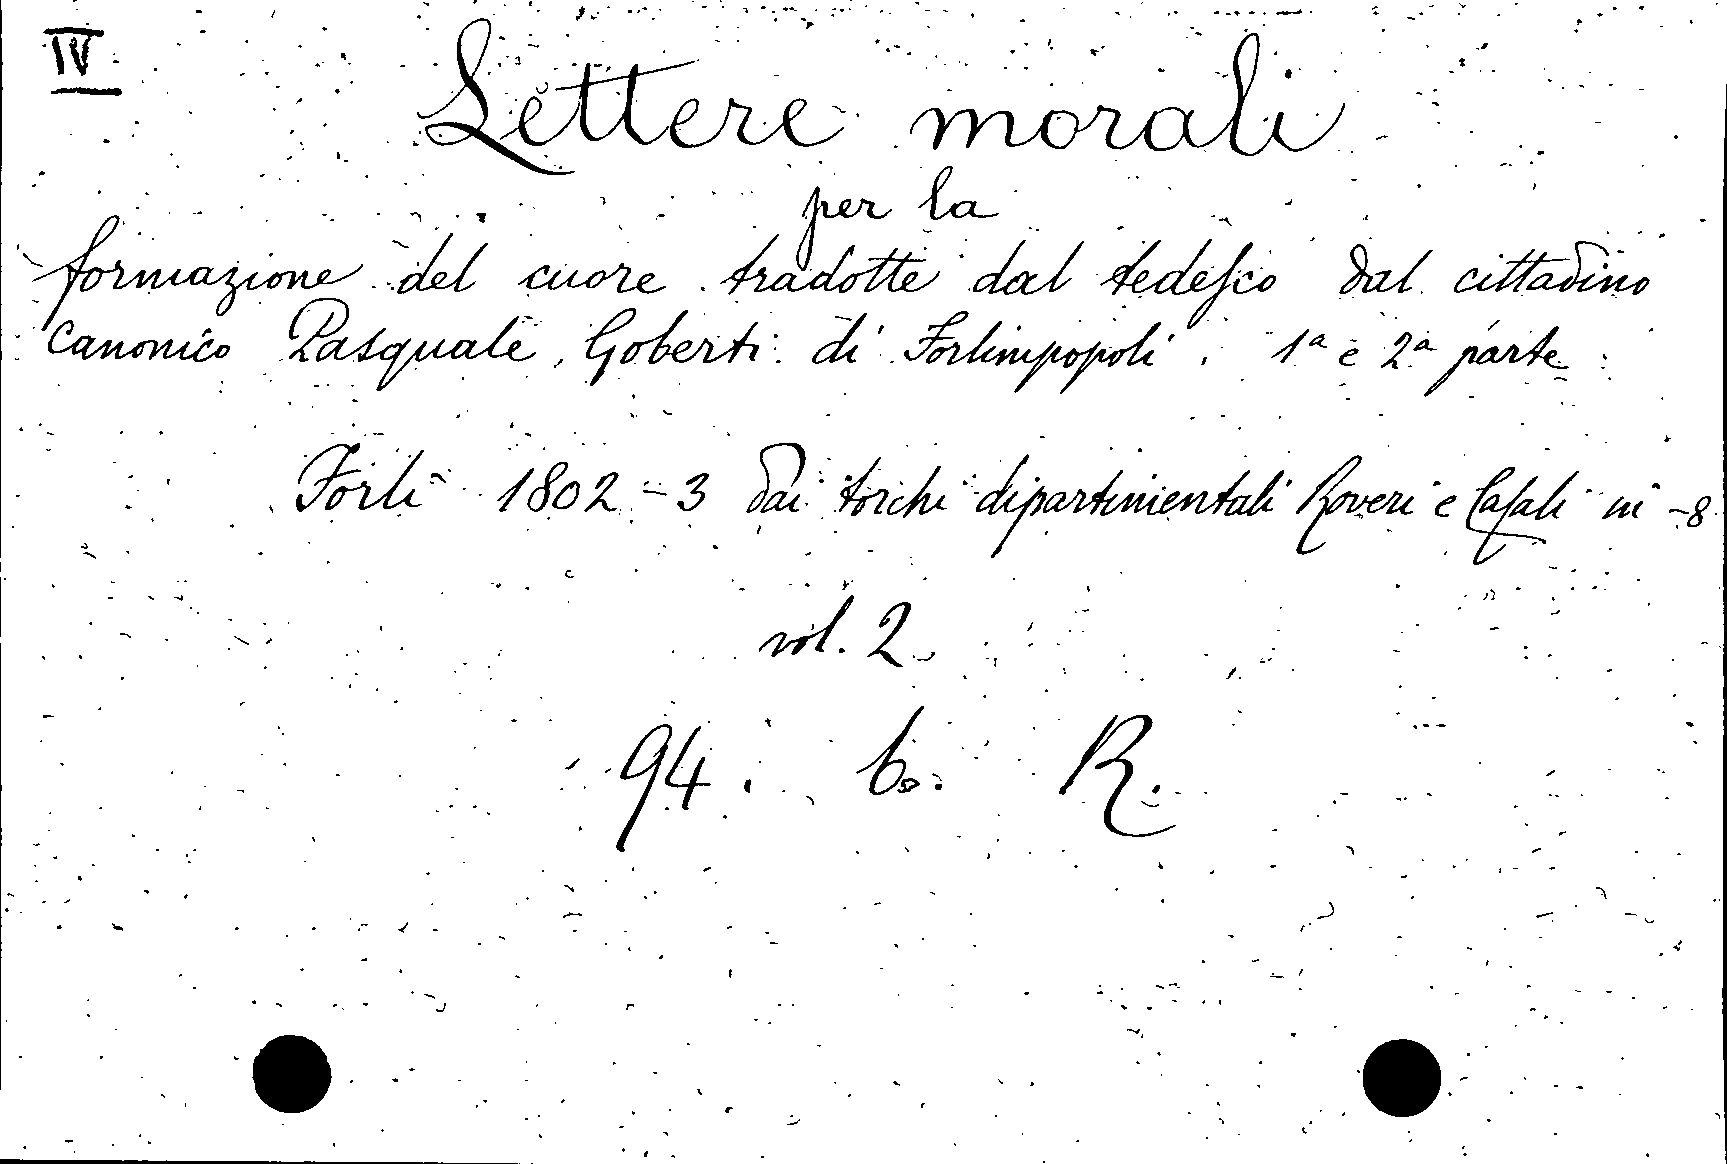 IV
Lettere morali
per la
formazione del cuore tradotte dal tedesco dal cittadino
canonico Pasquale Goberti di Forlimpopoli. 1ª e 2ª parte
Forlì 1802-3 dai torchi dipartimentali Roveri e Casali in-8
vol. 2
94. 6. R.